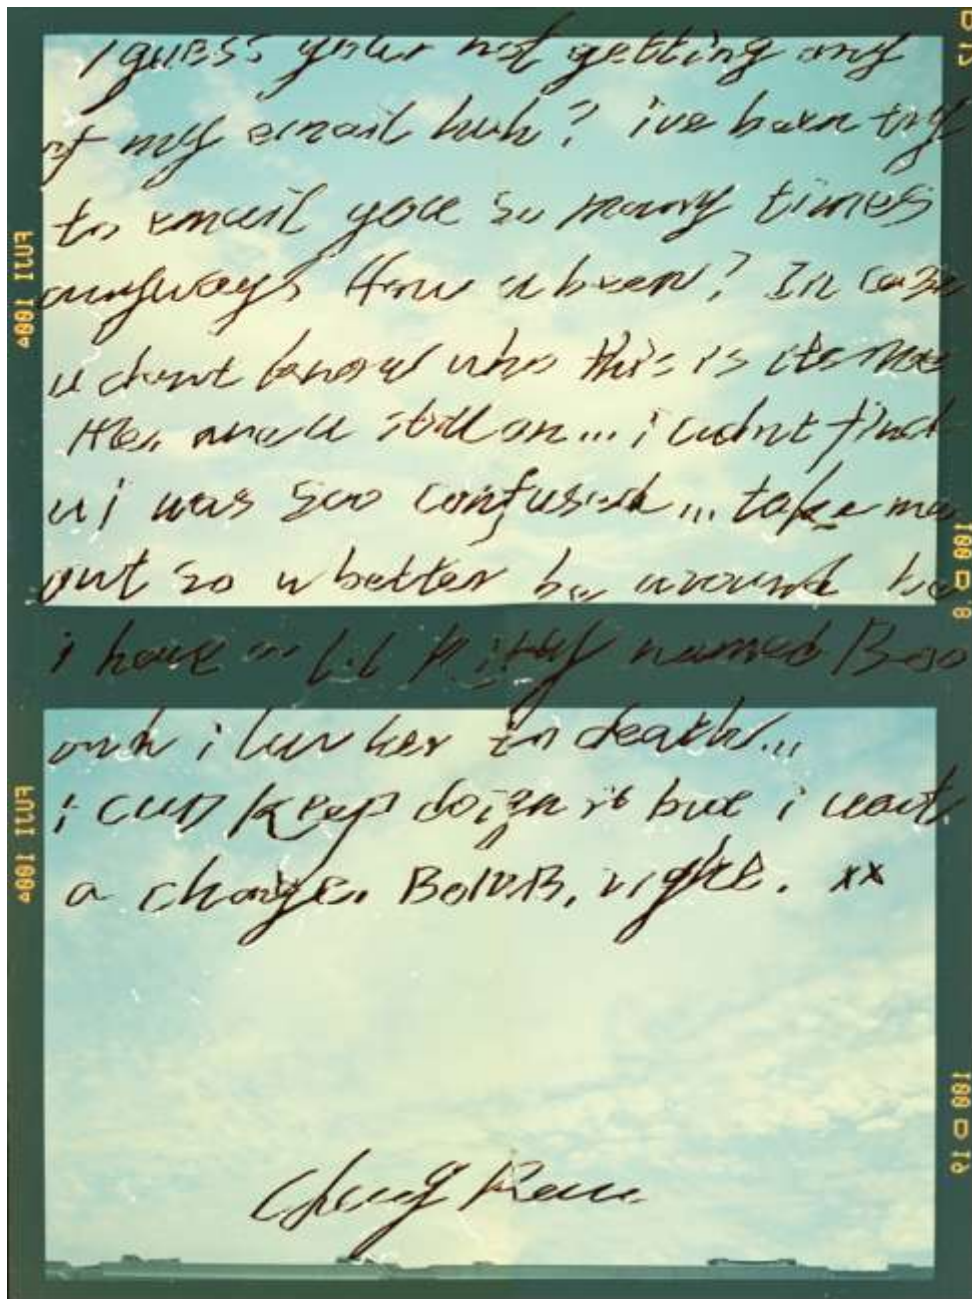 I guess your not getting any
of my email huh? ive been
to email you so many times
anyways How u been? In case
u dont know who this is its
still on... i cudnt find
u i was soo confused... take me
out so u better be around
i have a lil kitty named Boo
and i luv her to death...
i cud keep doign it but i want
a change. right. xx
FUJI 100
FUJI 100